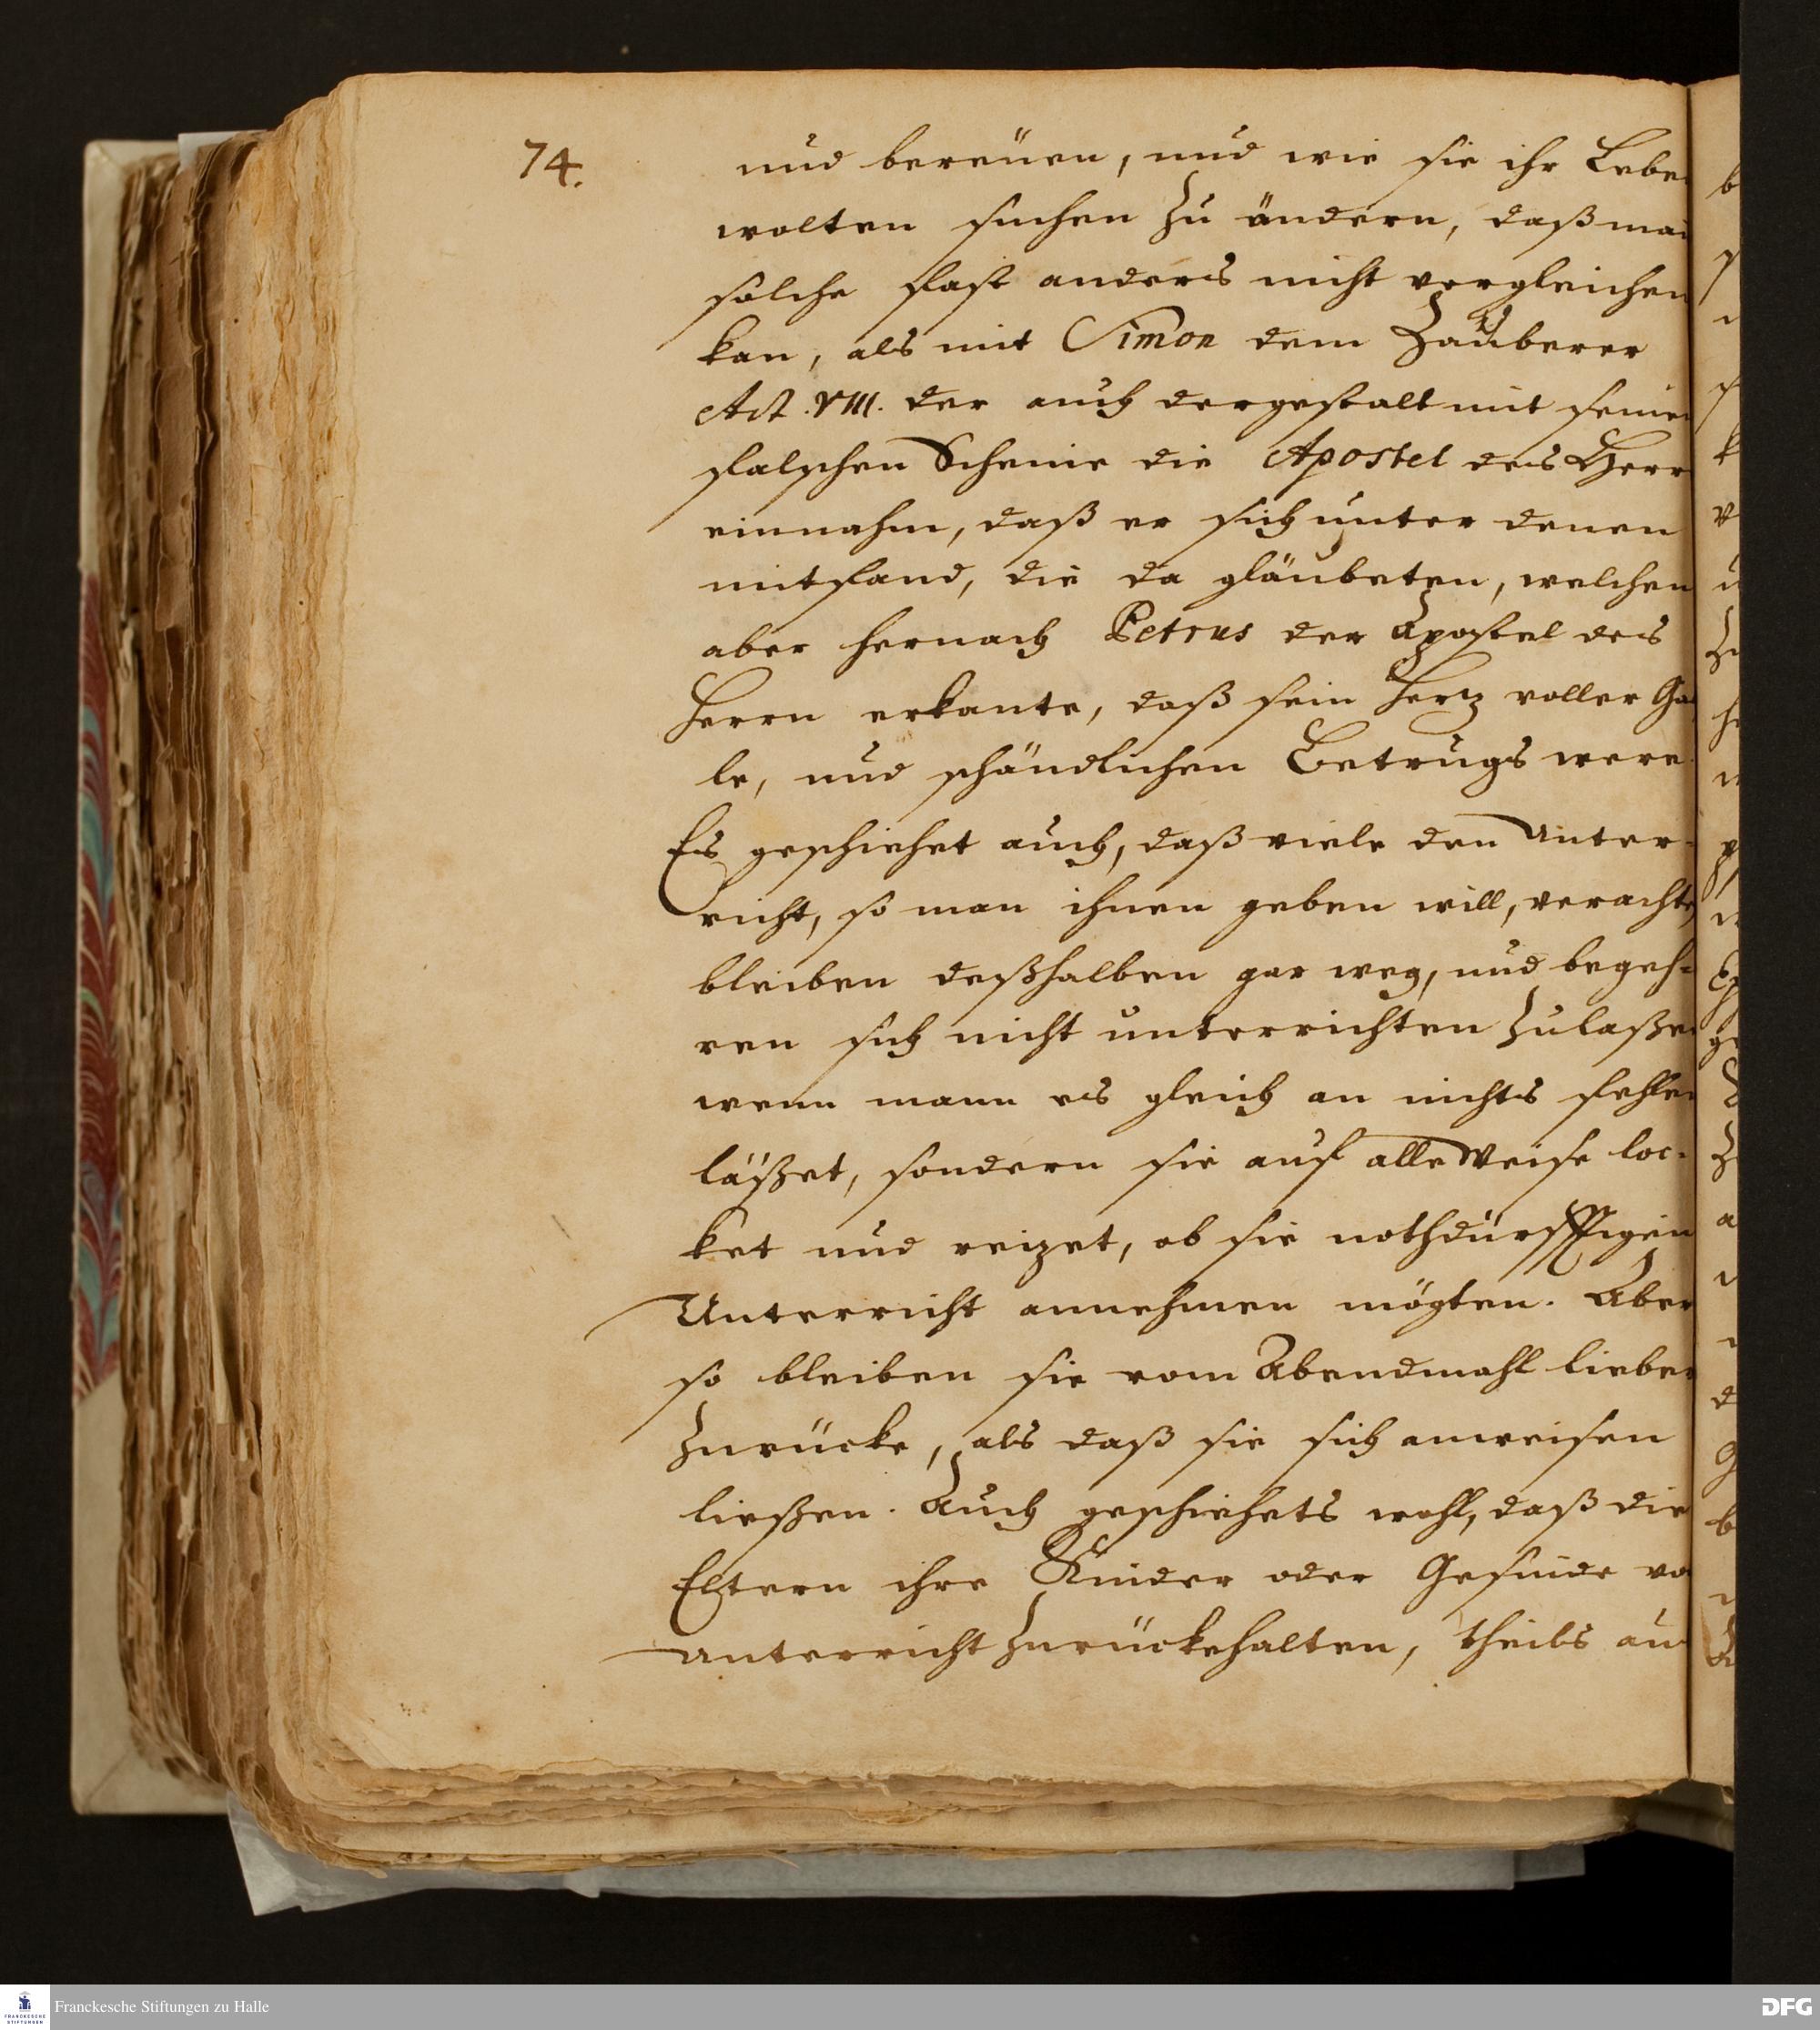 74.
und bereüen, und wie sie ihr Lebe
wolten suchen zu ändern, daß man
solche fast anders nicht vergleichen
kan, als mit Simon dem Zauberer
Act. VIII. der auch dergestalt mit seinen
falschen Scheine die Apostel des Herr
einnahm, daß er sich unter denen
mitfand, die da gläubeten, welchen
aber hernach Petrus der Apostel des
Herrn erkante, daß sein Hertz voller Gal
le, und schändlichen Betrugs were.
Es geschiehet auch, daß viele den Unter-
richt, so man ihnen geben will, verachte
bleiben deßhalben gar weg, und begeh-
ren sich nicht unterrichten zulaßen
wenn mann es gleich an nichts fehlen
läßet, sondern sie auf alle Weise loc-
ket und reizet, ob sie nothdürfftigen
Unterricht annehmen mögten. Aber
so bleiben sie vom Abendmahl lieber
zurücke, als daß sie sich anweisen
ließen. Auch geschiehets wohl, daß die
Eltern ihre Kinder oder Gesinde vo
Unterricht zurückehalten, theils au
Franckesche Stiftungen zu Halle
FRANCKESCHE
STIFTUNGEN
DFG